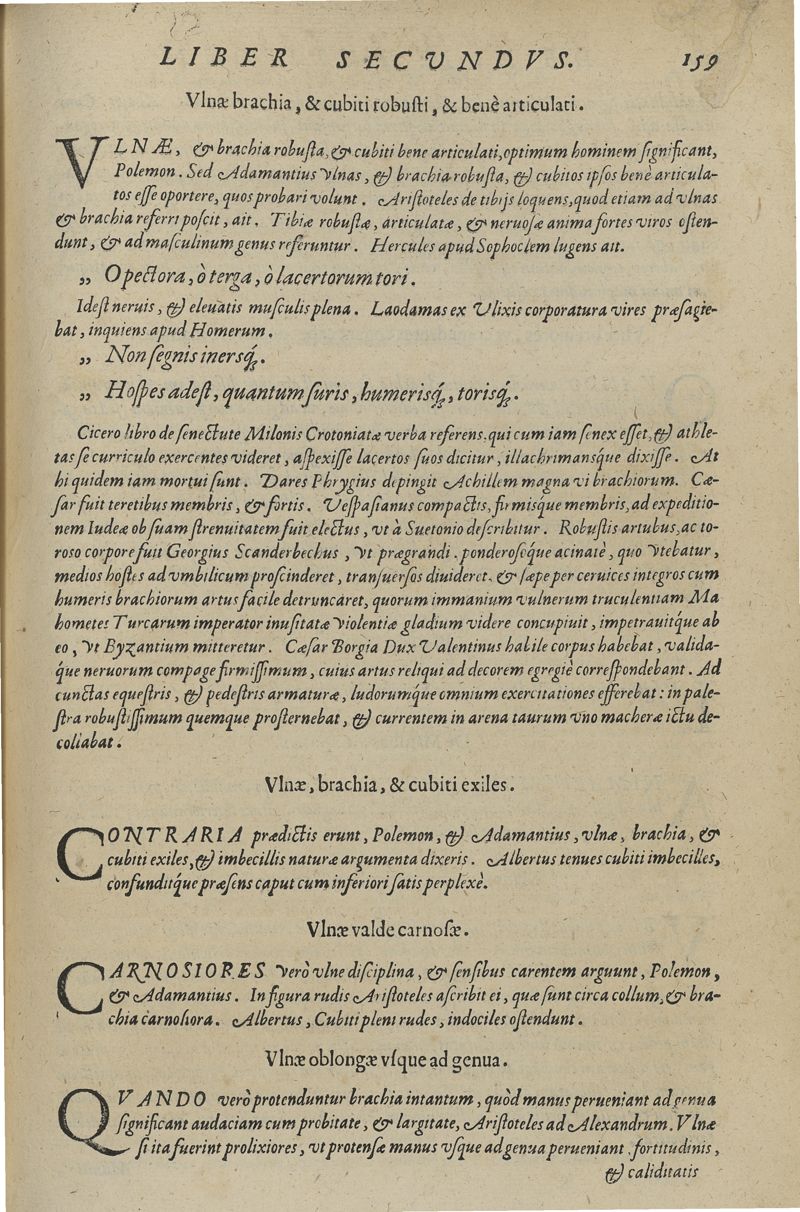 LIBER SECVNDVS. 159
Vlnæ brachia, & cubiti robusti, & benè articulati.
VLNÆ, & brachia robusta, & cubiti bene articulati, optimum hominem significant,
Polemon. Sed Adamantius vlnas, & brachia robusta, & cubitos ipsos benè articula-
tos esse oportere, quos probari volunt. Aristoteles de tibijs loquens, quod etiam ad vlnas
& brachia referri poscit, ait. Tibiæ robustæ, articulatæ, & neruosæ anima fortes viros osten-
dunt, & ad masculinum genus referuntur. Hercules apud Sophoclem lugens ait.
„ O pectora, ò terga, ò lacertorum tori.
Idest neruis, & eleuatis musculis plena. Laodamas ex Vlixis corporatura vires præsagie-
bat, inquiens apud Homerum.
„ Non segnis inersq́;.
„ Hospes adest, quantum suris, humerisq́;, torisq́;.
Cicero libro de senectute Milonis Crotoniatæ verba referens, qui cum iam senex esset, & athle-
tas se curriculo exercentes videret, aspexisse lacertos suos dicitur, illachrimansq́ue dixisse. At
hi quidem iam mortui sunt. Dares Phrygius depingit Achillem magna vi brachiorum. Cæ-
sar fuit teretibus membris, & fortis. Vespasianus compactis, firmisq́ue membris, ad expeditio-
nem Iudeæ ob suam strenuitatem fuit electus, vt à Suetonio describitur. Robustis artubus, ac to-
roso corpore fuit Georgius Scanderbechus, vt prægrandi, ponderoseq́ue acinate, quo vtebatur,
medios hostes ad vmbilicum proscinderet, transuersos diuideret, & sæpe per ceruices integros cum
humeris brachiorum artus facile detruncaret, quorum immanium vulnerum truculentiam Ma
hometes Turcarum imperator inusitatæ violentiæ gladium videre concupiuit, impetrauitq́ue ab
eo, vt Byzantium mitteretur. Cæsar Borgia Dux Valentinus habile corpus habebat, valida-
q́ue neruorum compage firmissimum, cuius artus reliqui ad decorem egregiè correspondebant. Ad
cunctas equestris, & pedestris armaturæ, ludorumq́ue omnium exercitationes efferebat: in pale-
stra robustissimum quemque prosternebat, & currentem in arena taurum vno macheræ ictu de-
collabat.
Vlnæ, brachia, & cubiti exiles.
CONTRARIA prædictis erunt, Polemon, & Adamantius, vlnæ, brachia, &
cubiti exiles, & imbecillis naturæ argumenta dixeris. Albertus tenues cubiti imbecilles,
confunditq́ue præsens caput cum inferiori satis perplexè.
Vlnæ valde carnosæ.
CARNOSIORES verò vlne disciplina, & sensibus carentem arguunt, Polemon,
& Adamantius. In figura rudis Aristoteles ascribit ei, quæ sunt circa collum, & bra-
chia carnosiora. Albertus, Cubiti pleni rudes, indociles ostendunt.
Vlnæ oblongæ vsque ad genua.
QVANDO verò protenduntur brachia intantum, quòd manus perueniant ad genua
significant audaciam cum probitate, & largitate, Aristoteles ad Alexandrum. Vlnæ
si ita fuerint prolixiores, vt protensæ manus vsque ad genua perueniant, fortitudinis,
& caliditatis